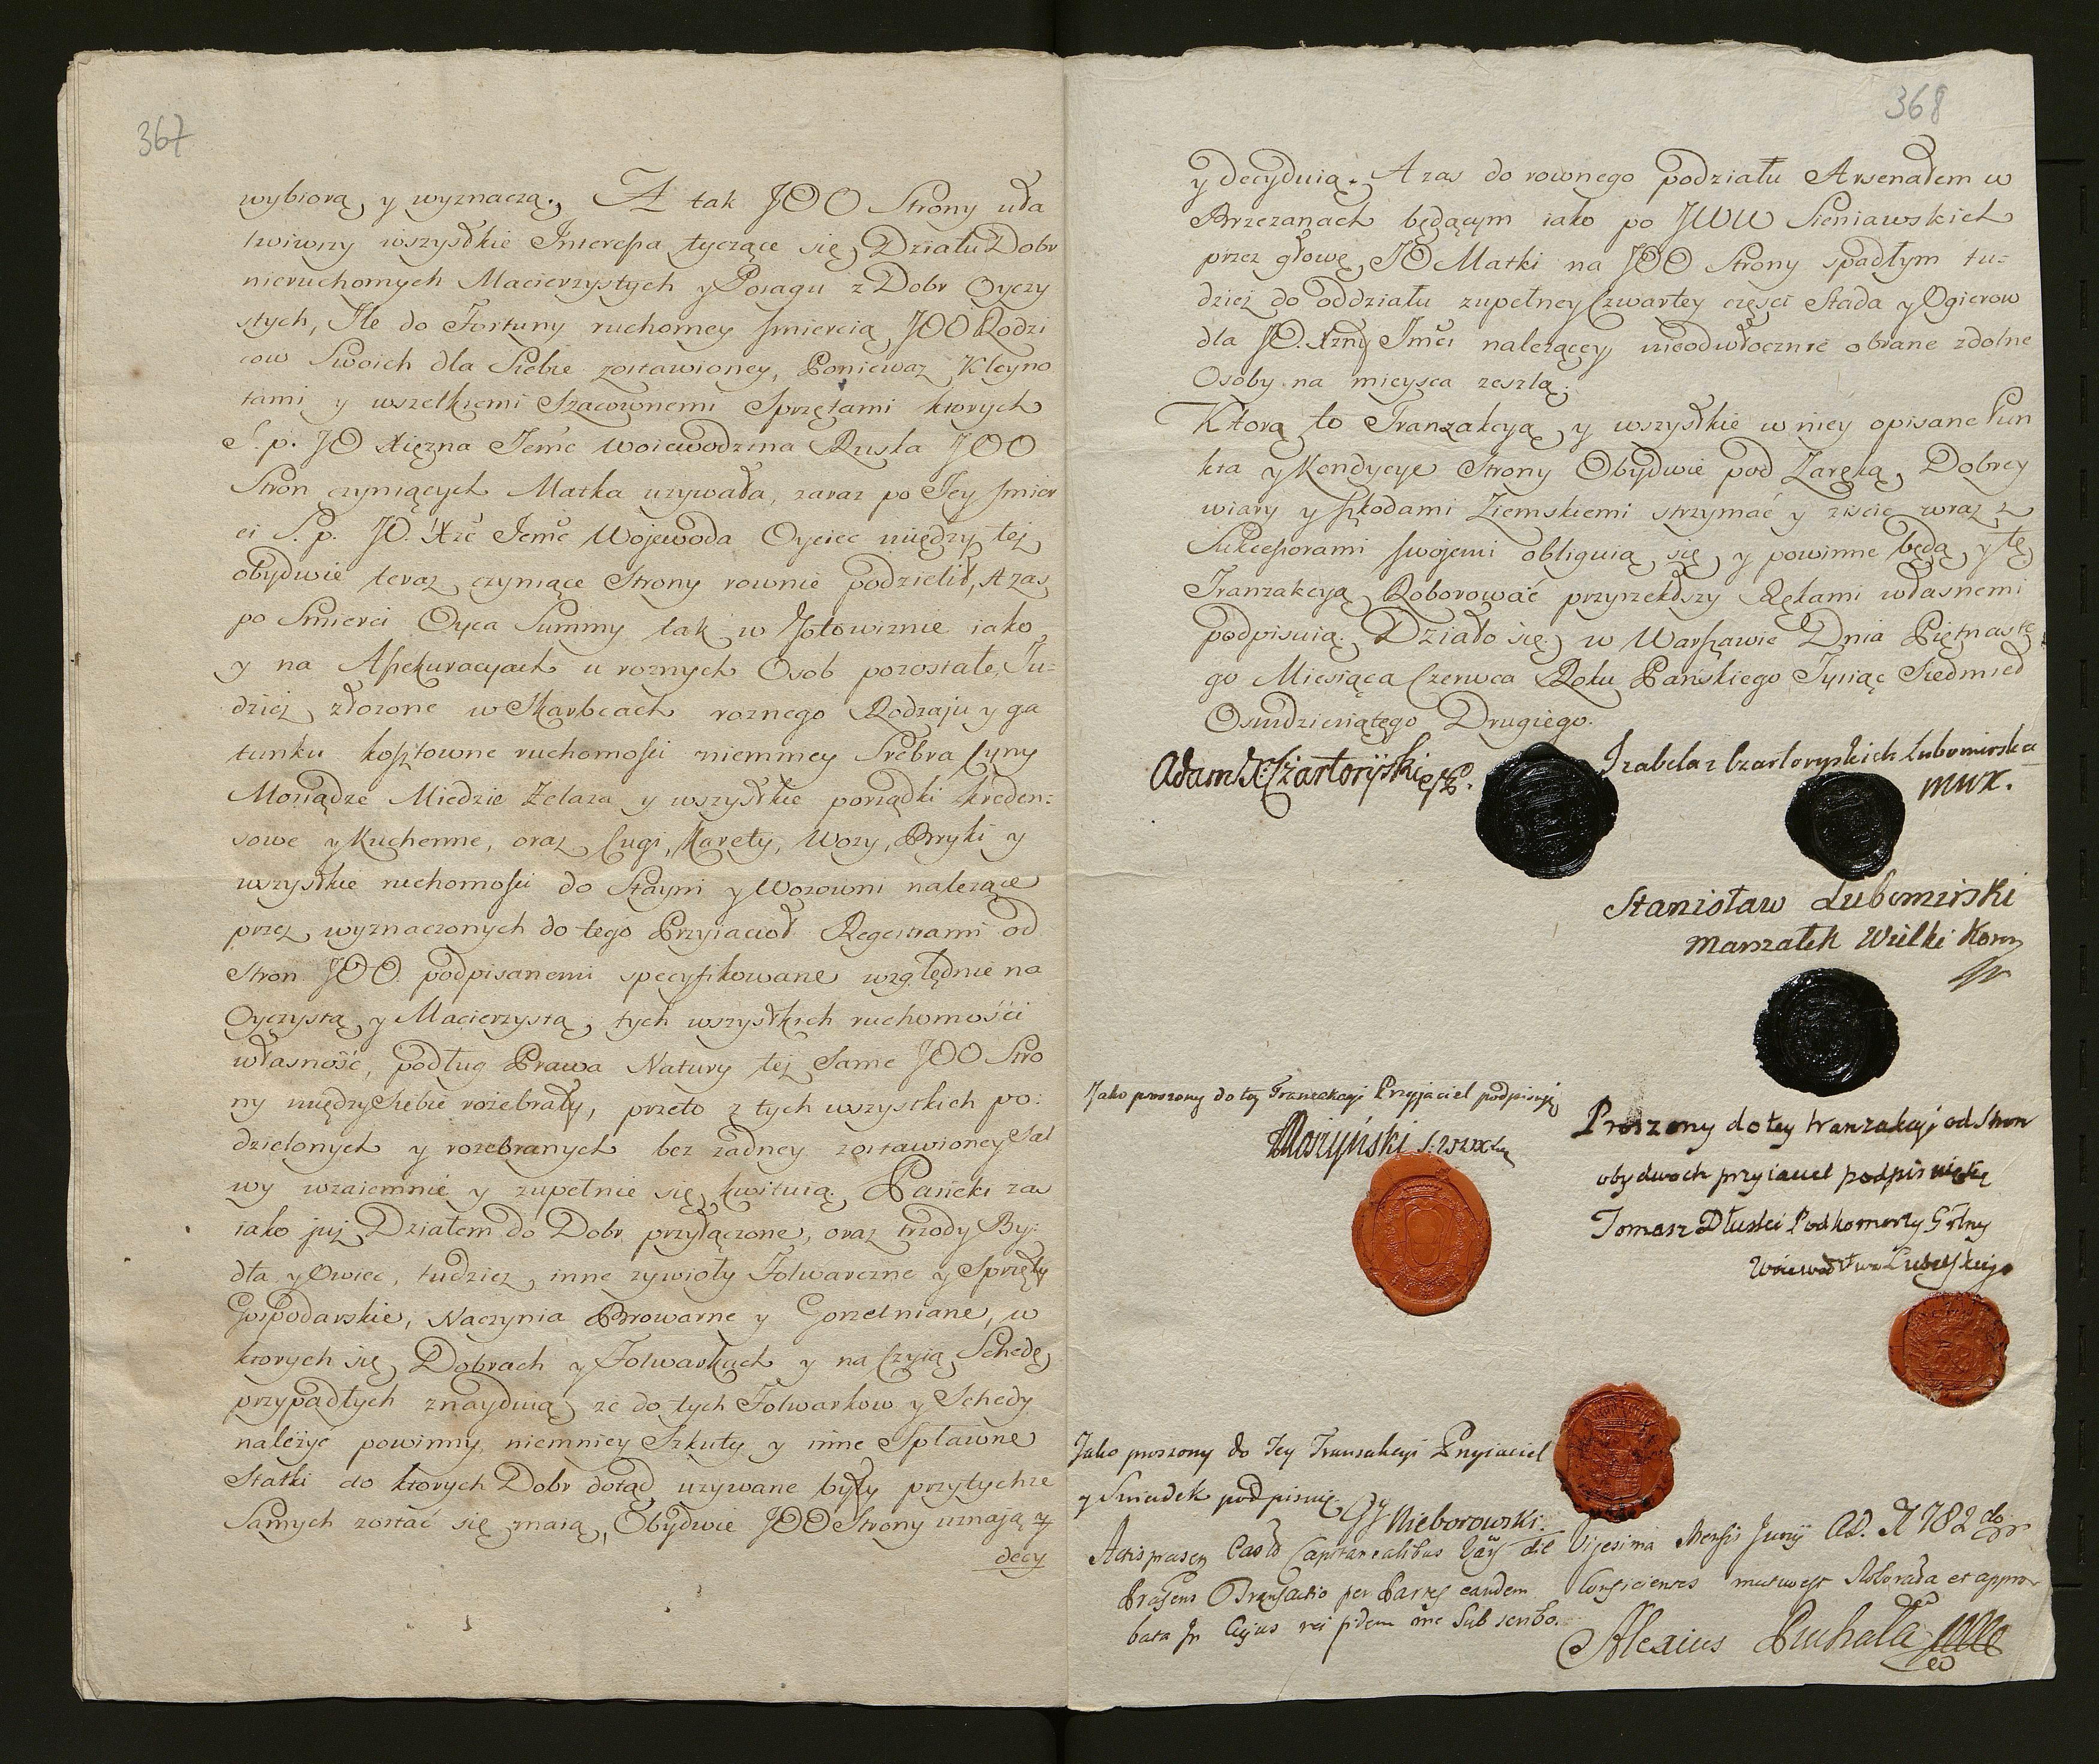 367
wybiorą y wyznaczą., A tak JOO Strony uła
twiwszy wszystkie Interessa tyczące się Działu Dobr
nieruchomych Macierzystych y Posagu z Dobr Oyczy
stych, Ile do Fortuny ruchomey smiercią JOO Rodzi
cow Swoich dla Siebie zostawioney, Poniewaz Kleyno
tami y wszelkiemi Szacownemi Sprzętami ktorych
S. p. JO Xięzna Jeme Woiewodzina Ruska JOO
Stron czyniących Matka uzywała, zaraz po Jey smier
ci S. p. JO. Xże Jeme Wojewoda Oyciec między tej
obydwie teraz czyniące Strony rownie podzielił, A zas
po Smierci Oyca Summy tak w Gotowiznie iako
y na Assekuracyach u roznych Osob pozostałe, Tu-
dziej złozone w Skarbcach roznego Rodzaju y ga
tunku kosztowne ruchomosci niemniey Srebra Cyny
Mosiądze Miedzie Zelaza y wszystkie porządki kreden:
sowe y Kuchenne, oraz Cugi, Karety, Wozy, Bryki y
wszystkie ruchomosci do Stayni y Wozowni nalezące
przez wyznaczonych do tego Przyiacioł Regestrami od
Stron JOO. podpisanemi specyfikowane względnie na
Oyczystą y Macierzystą tych wszystkich ruchomości
własność, podług Prawa Natury tej same JOO Stro
ny między Siebie rozebrały, przeto z tych wszystkich po:
dzielonych y rozebranych bez zadney zostawioney Sal
wy wzaiemnie y zupełnie się kwituią. Pasieki zas
iako juz Działem do Dobr przyłączone, oraz trzody By:
dła y Owiec, tudziez inne zywioły Folwarczne y Sprzęty
Gospodarskie, Naczynia Browarne y Gorzelniane, w
ktorych się Dobrach y Folwarkach y na Czyią Schedę
przypadłych znayduią ze do tych Folwarkow y Schedy
nalezyć powinny, niemniey Szkuty y inne Spławne
Statki do ktorych Dobr dotąd uzywane były przytychze
Samych zostać się maią, Obydwie JOO Strony uznają y
decy
368
y decyduią. A zas do rownego podziału Arsenałem w
Brzezanach będącym iako po JWW Sieniawskich
przez głowę JO Matki na JOO Strony spadłym tu-
dziez do oddziału zupełney Czwartey częsci Stada y Ogierow
dla JO. Xzny Jmci nalezącey, nieodwłocznie obrane zdolne
Osoby na mieysca zeszlą.
Ktorą to Tranzakcyą y wszystkie w niey opisane Pun
kta y Kondycye Strony Obydwie pod Zaręką Dobrey
wiary y szkodami Ziemskiemi strzymać y ziscic wraz z
Sukcessorami swojemi obliguią się y powinne będą, y tę
Tranzakcyą Roborować przyrzekłszy Rękami własnemi
podpisuią. Działo się w Warszawie Dnia Piętnaste
go Miesiąca Czerwca Roku Pańskiego Tysiąc Siedmsed
Osmdziesiątego Drugiego.
Adam X Czartoryski
Izabela z Czartoryskich Lubomirska
mwk.
Stanisław Lubomirski
Marszałek Wielki Kor
Jako proszony do tey Tranzakcyi Przyjaciel podpisuję
Moszyński
Proszony do tey tranzakcyi od Stron
obydwoch przyiaciel podpisuię
Tomasz Dłuski Podkomorzy Gtlny
Woiewodztwa Lubelskiego
Jako proszony do Tey Tranzakcyi Przyiaciel
y Swiadek podpisuię
Nieborowski.
Actis praesen Capitanealibus die Vigesima Mensis Junij AD. 1782do
Praesens Transactio per Partes eandem Conficientes roborata et appro
bata In Cujus rei fidem me Subscribo.
Alexius